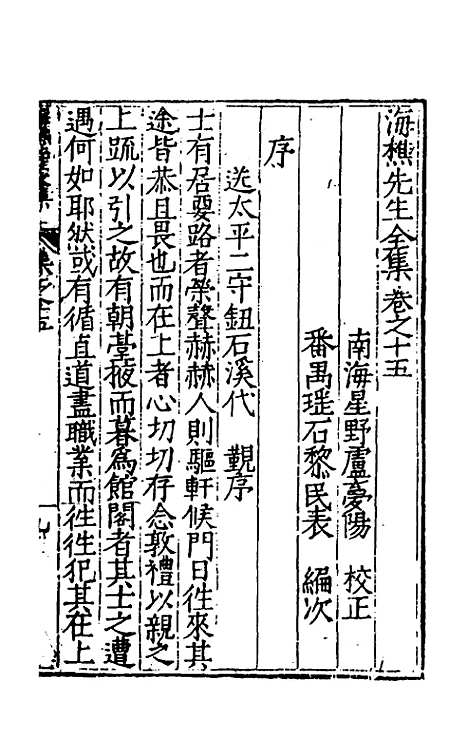 海樵先生全集卷之十五
南海星野盧夢陽 校正
番禺瑤石黎民表 編次
序
送太平二守鈕石溪代 覲序
士有居要路者榮聲赫赫人則驅軒候門日往來其
途皆恭且畏也而在上者心切切存念敦禮以親之
上疏以引之故有朝臺掖而暮爲館閣者其士之遭
遇何如耶然或有循直道盡職業而往往犯其在上